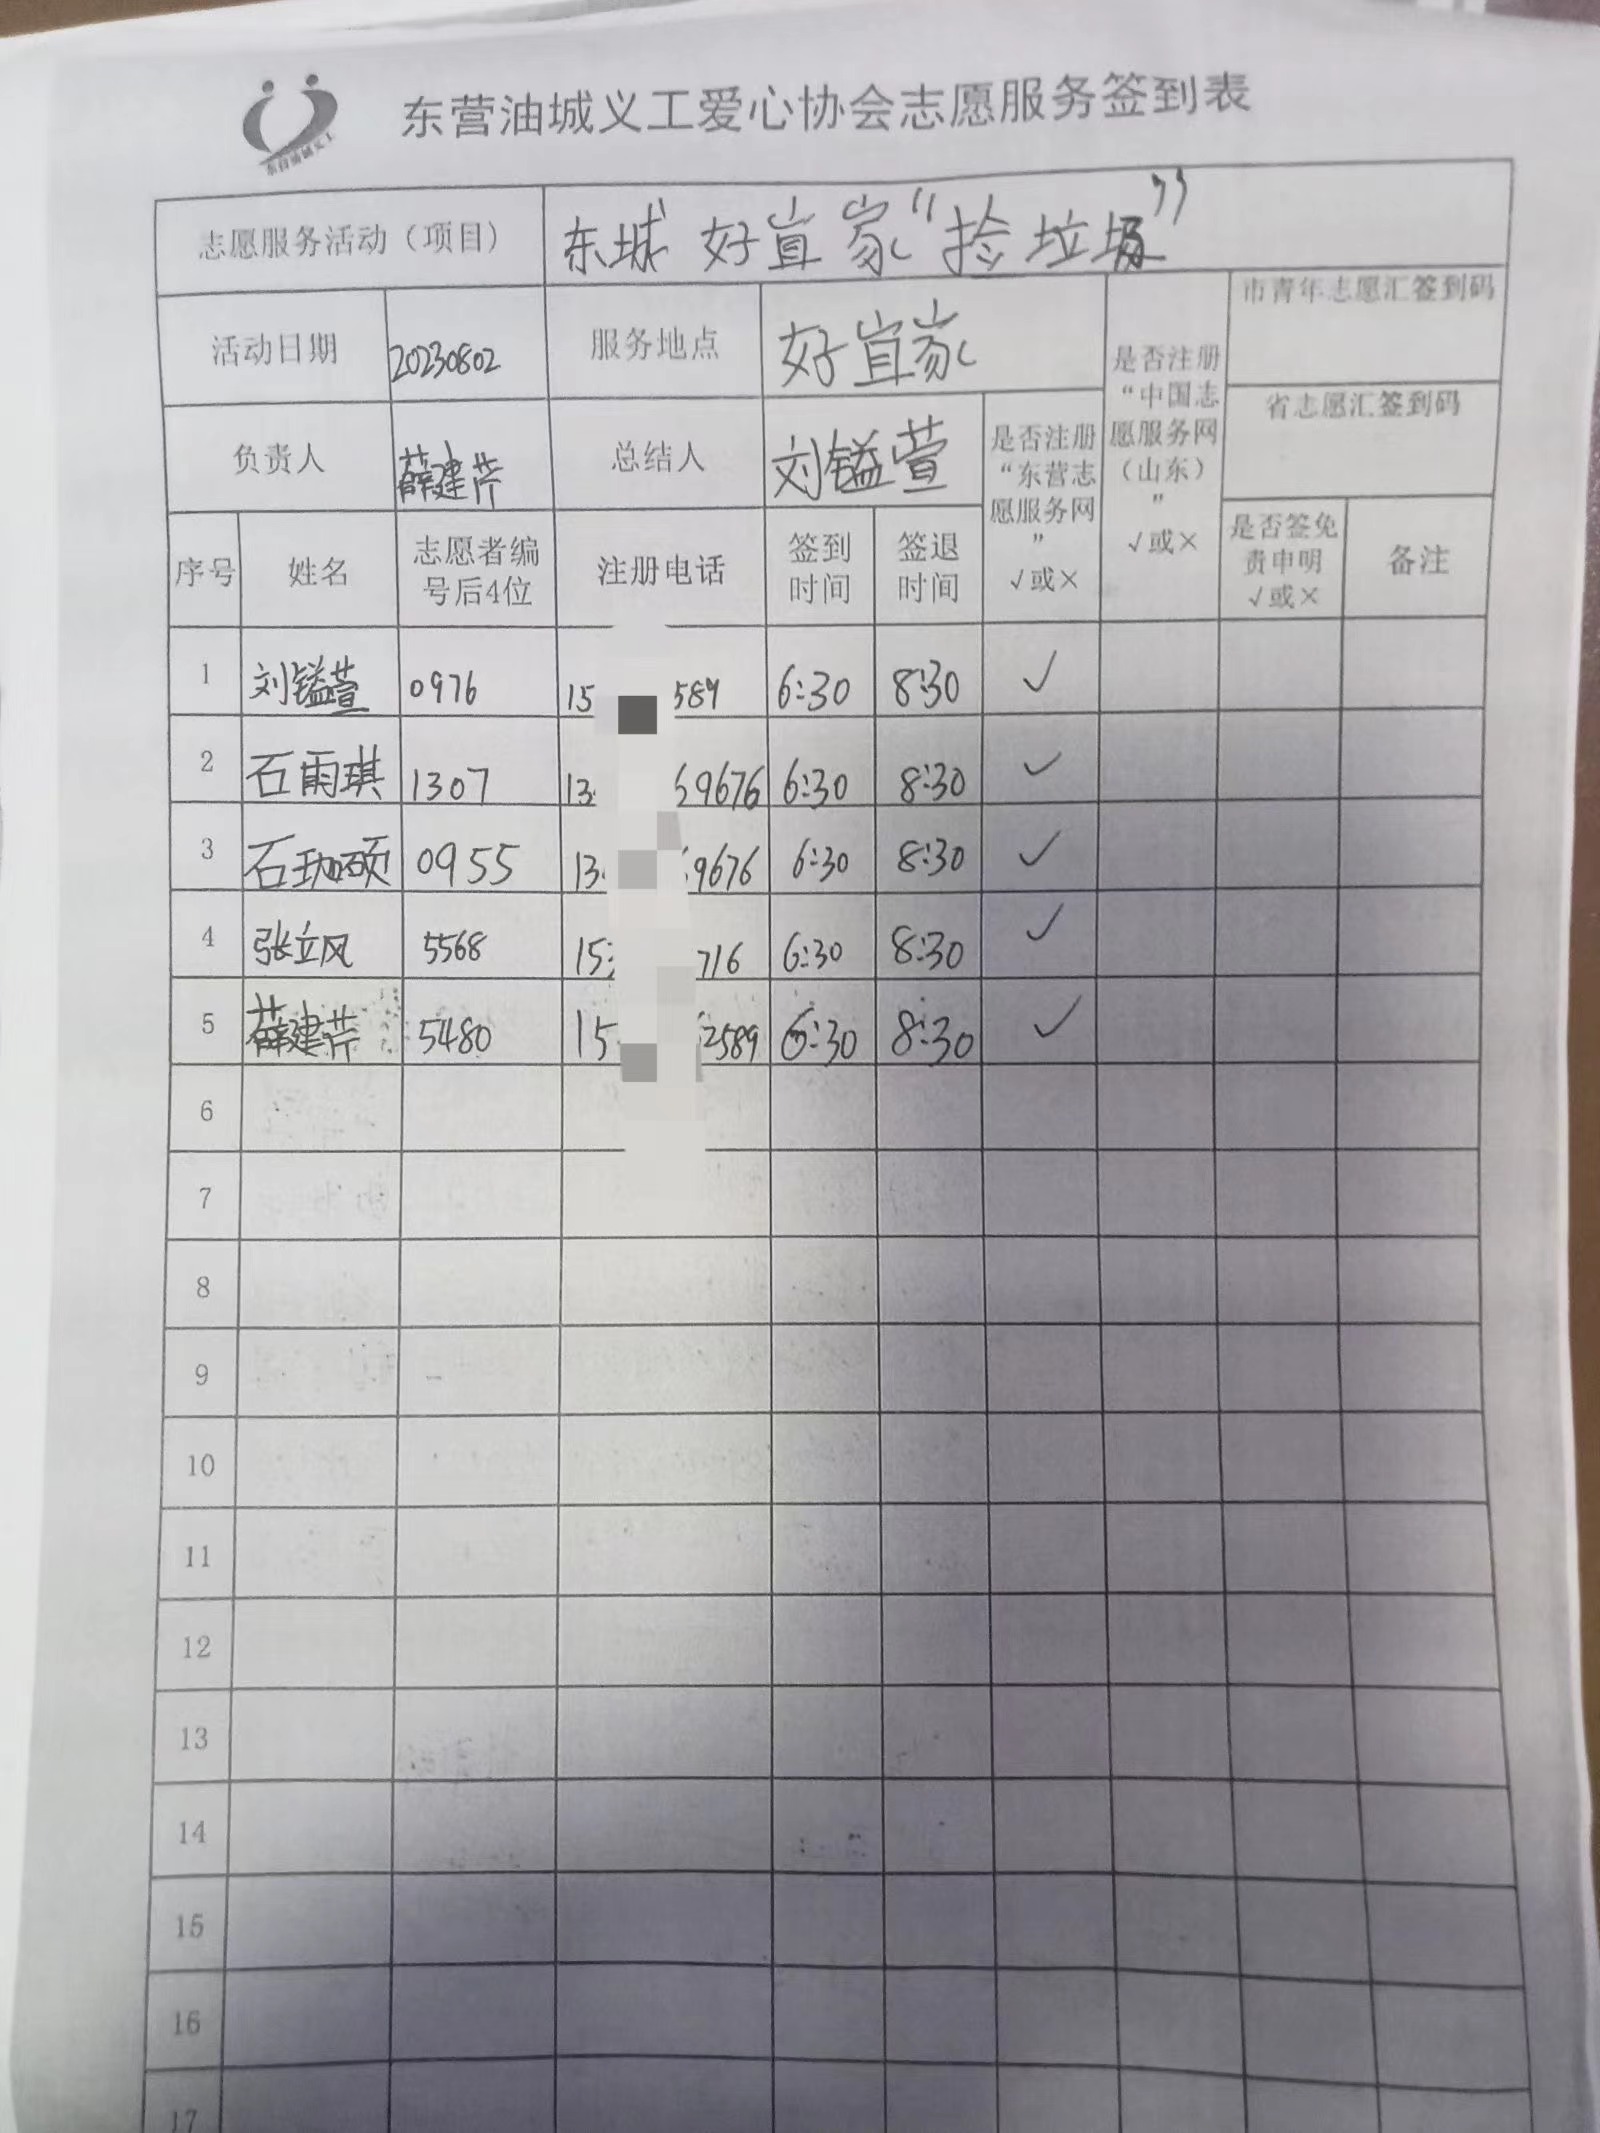 东营油城义工
东营油城义工爱心协会志愿服务签到表
志愿服务活动（项目） 东城 好宜家“捡垃圾”
活动日期 20230802 服务地点 好宜家
市青年志愿汇签到码
省志愿汇签到码
负责人 薛建芹 总结人 刘镒萱
是否注册
“东营志
愿服务网
”
√或×
是否注册
“中国志
愿服务网
（山东）
”
√或×
序号 姓名 志愿者编
号后4位
注册电话
签到
时间
签退
时间
是否签免
责申明
√或×
备注
1 刘镒萱 0976 15 589 6:30 8:30 ✓
2 石雨琪 1307 13 9676 6:30 8:30 ✓
3 石珈硕 0955 13 9676 6:30 8:30 ✓
4 张立风 5568 15 716 6:30 8:30 ✓
5 薛建芹 5480 15 2589 6:30 8:30 ✓
6
7
8
9
10
11
12
13
14
15
16
17